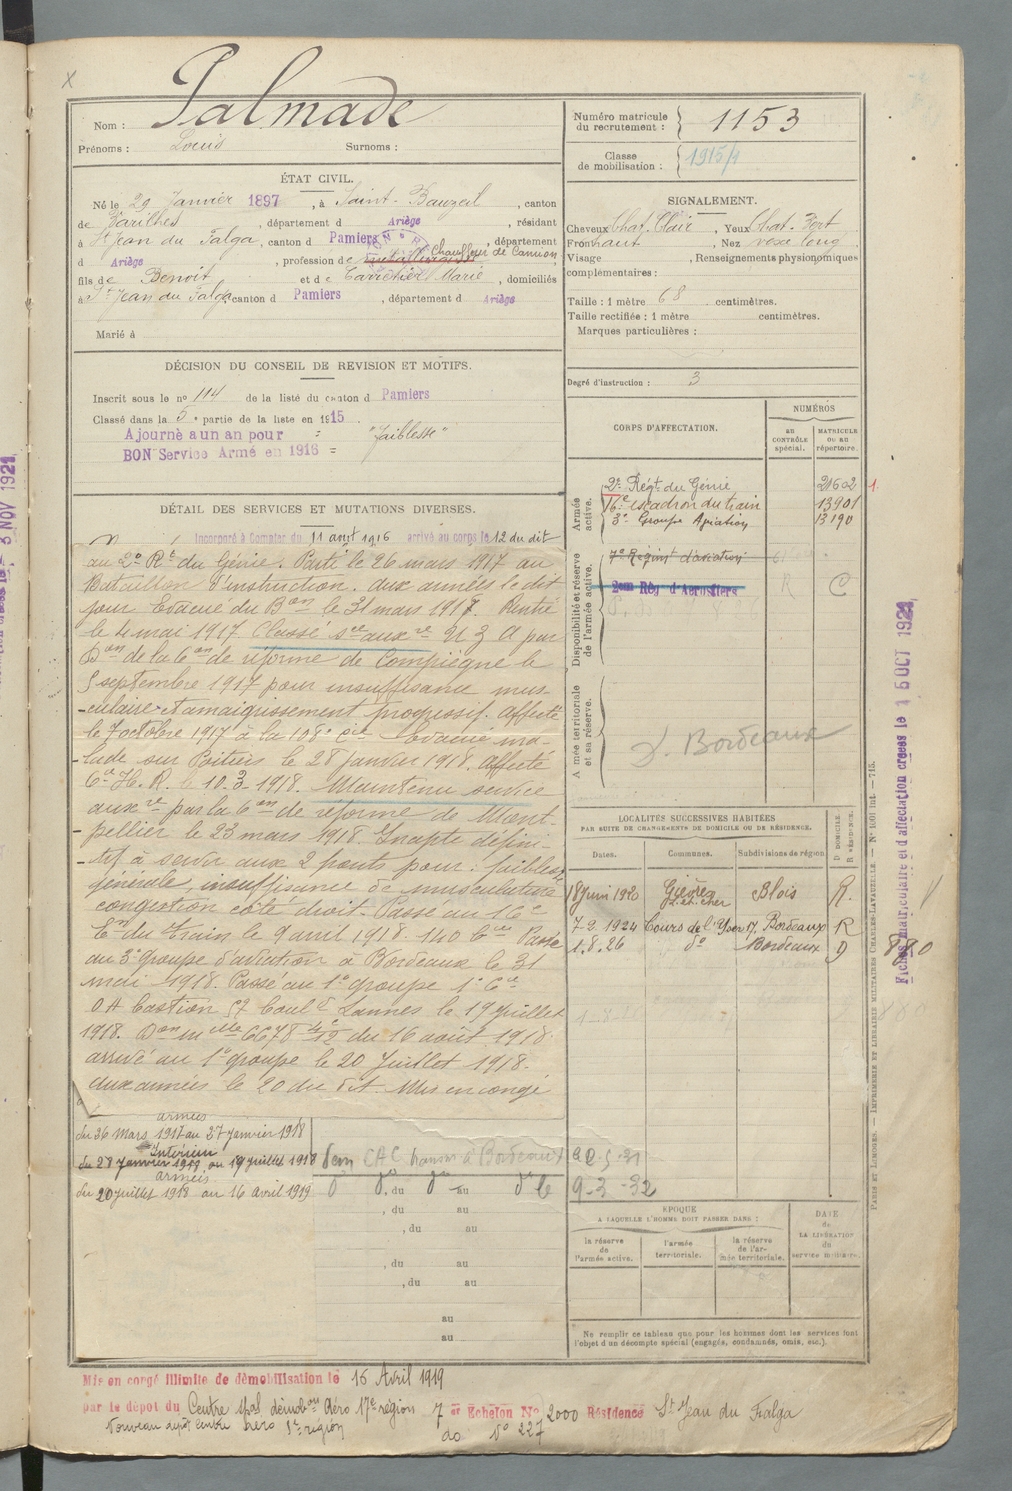 Nom : Palmade
Prénoms : Louis Surnoms :
Numéro matricule du recrutement : 1153
Classe de mobilisation : 1915/1
ÉTAT CIVIL.
Né le 29 Janvier 1897, à Saint-Bauzeil, canton
de Varilhes, département d Ariège, résidant
à St Jean du Falga, canton d Pamiers, département
d Ariège, profession de Chauffeur de Camion
fils de Benoit et de Marie, domiciliés
à St Jean du Falga canton d Pamiers, département d Ariège
Marié à
SIGNALEMENT.
Cheveux chat. Clair, Yeux Chat. Fort
Front haut, Nez long
Visage , Renseignements physionomiques
complémentaires :
Taille : 1 mètre 68 centimètres.
Taille rectifiée : 1 mètre centimètres.
Marques particulières :
Degré d'instruction : 3
DÉCISION DU CONSEIL DE REVISION ET MOTIFS.
Inscrit sous le n° 114 de la liste du canton d Pamiers
Classé dans la 5e partie de la liste en 1915.
Ajourné a un an pour = "Faiblesse"
BON Service Armé en 1916 =
DÉTAIL DES SERVICES ET MUTATIONS DIVERSES.
Incorporé à compter du 11 août 1916 arrivé au corps le 12 du dit
au 2e Rt du Génie. Parti le 26 mars 1917 au
Bataillon d'instruction. aux armées le dit
jour Evacué du Bon le 31 mars 1917. Rentré
le 4 mai 1917. Classé sce auxre n 3 A par
Don de la Con de réforme de Compiègne le
5 septembre 1917 pour insuffisance mus-
-culaire et amaigrissement progressif. Affecté
le 7 octobre 1917 à la 108e Cie Evacué ma-
-lade sur Poitiers le 28 janvier 1918. affecté
Cie H. R. le 10.3.1918. Maintenu service
auxre par la Con de réforme de Mont-
-pellier le 23 mars 1918. Inapte défini-
-tif à servir aux 2 ponts pour : faiblesse
générale, insuffisance de musculature
congestion côté droit. Passé au 16e
Eon du Train le 9 avril 1918. 140 Cie Passé
au 3e groupe d'aviation à Bordeaux le 31
mai 1918. Passé au 1er groupe 1e Cie
DA bastion 57 Boul d Lannes le 19 juillet
1918. Don mlle 6678 4/12 du 16 août 1918.
arrivé au 1er groupe le 20 Juillet 1918.
Aux armées le 20 du dit. Mis en congé
armées
du 26 Mars 1917 au 27 janvier 1918
Intérieur
du 28 Janvier 1918 au 19 juillet 1918
armées
du 20 juillet 1918 au 16 Avril 1919
CAC transm à Bordeaux le 2-5-31
do do du do au do le 9-3-32
, du au
, du au
, du au
, du au
au
au
CORPS D'AFFECTATION.
NUMÉROS
au contrôle spécial.
matricule ou au répertoire.
Armée active.
2e Régt du Génie 21602
16e escadron du train 13901
3e Groupe Aviation 13190
Disponibilité et réserve de l'armée active.
7e Régint d'aviation
2em Rég d'Aerostiers R C
Armée territoriale et sa réserve.
Bordeaux
LOCALITÉS SUCCESSIVES HABITÉES
PAR SUITE DE CHANGEMENTS DE DOMICILE OU DE RÉSIDENCE.
Dates. Communes. Subdivisions de région. D DOMICILE. R RÉSIDENCE.
18 juin 1920 Gièvres Loir et Cher Blois R.
7-2 1924 Cours de l'Yser 17, Bordeaux R
1.8.26 do Bordeaux D
880
ÉPOQUE
A LAQUELLE L'HOMME DOIT PASSER DANS :
la réserve de l'armée active.
l'armée territoriale.
la réserve de l'armée territoriale.
DATE de LA LIBÉRATION du service militaire.
Ne remplir ce tableau que pour les hommes dont les services font
l'objet d'un décompte spécial (engagés, condamnés, omis, etc.).
Mis en congé illimité de démobilisation le 16 Avril 1919
par le dépôt du Centre spal démobon Aéro 17e région 7er Echelon No 2000 Résidence St Jean du Falga
do No 227
Fiches matriculaire et d'affectation créées le 15 OCT 1921
3 NOV 1921
PARIS ET LIMOGES. — IMPRIMERIE ET LIBRAIRIE MILITAIRES CHARLES-LAVAUZELLE.